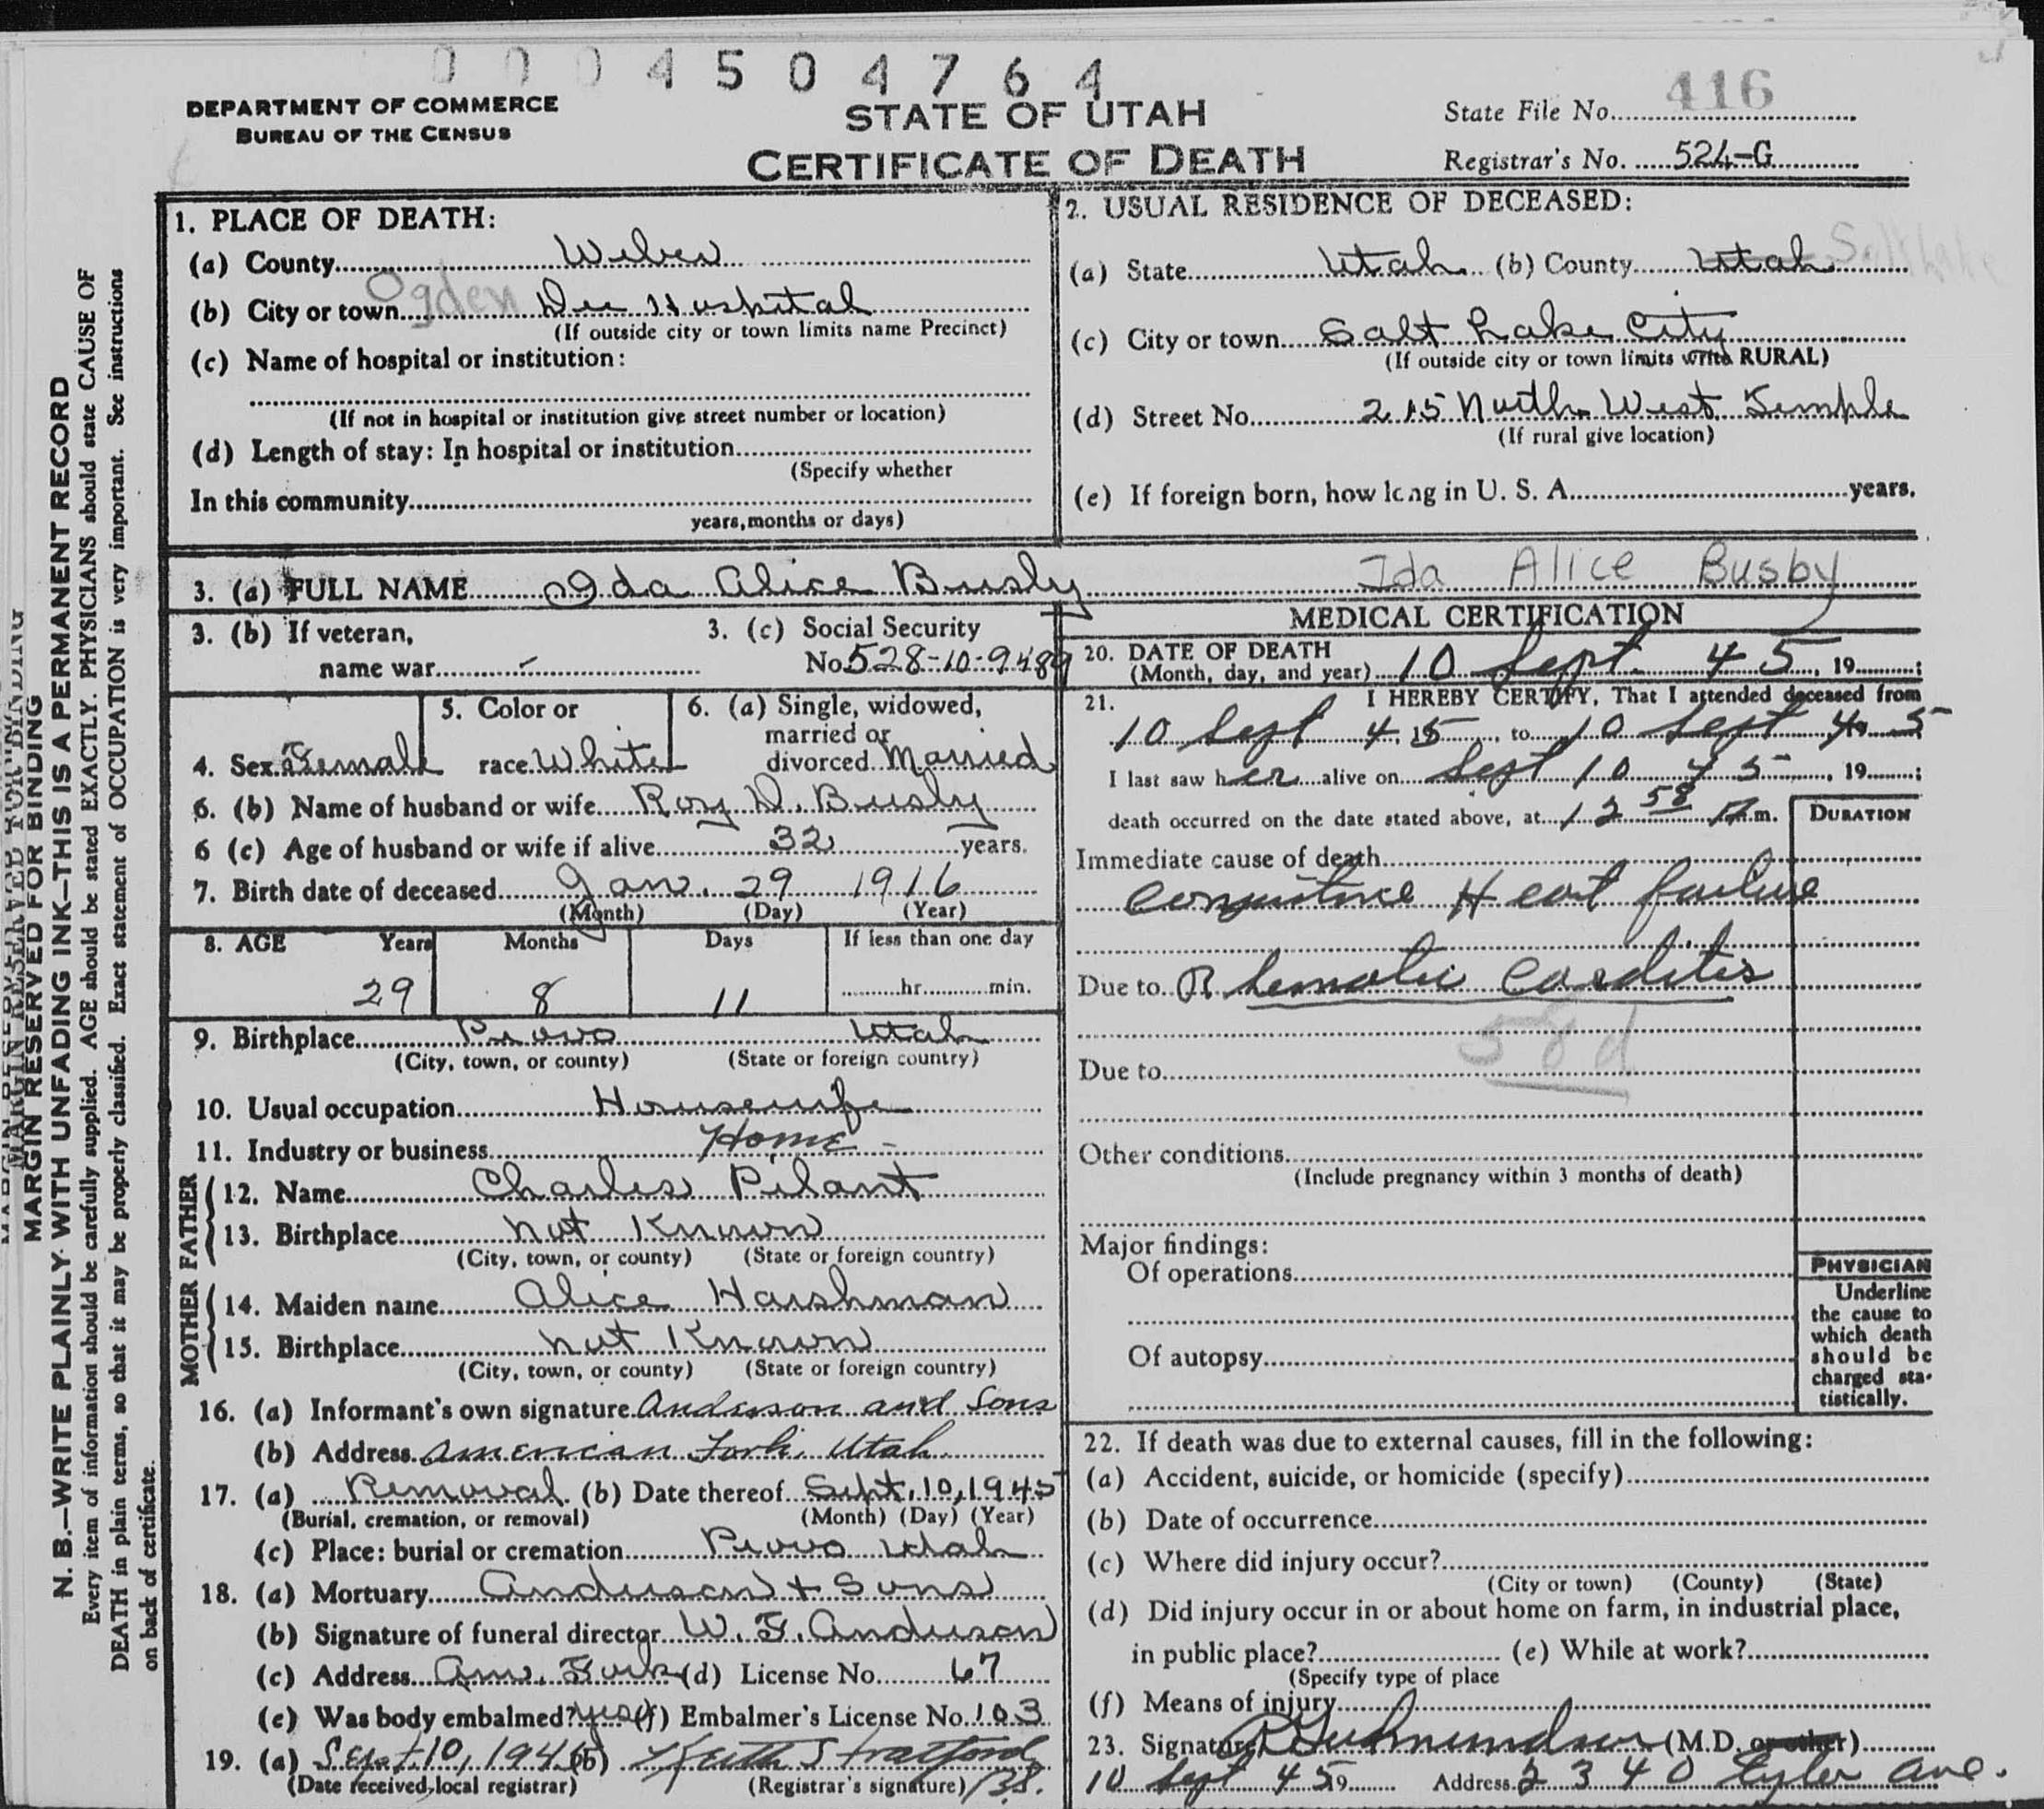 0 0 0 4 5 0 4 7 6 4
DEPARTMENT OF COMMERCE
BUREAU OF THE CENSUS
STATE OF UTAH
CERTIFICATE OF DEATH
State File No. 416
Registrar's No. 524-G
1. PLACE OF DEATH:
(a) County Weber
(b) City or town Ogden Dee Hospital
(If outside city or town limits name Precinct)
(c) Name of hospital or institution:
(If not in hospital or institution give street number or location)
(d) Length of stay: In hospital or institution
(Specify whether
In this community
years, months or days)
2. USUAL RESIDENCE OF DECEASED:
(a) State Utah (b) County Utah Salt Lake
(c) City or town Salt Lake City
(If outside city or town limits write RURAL)
(d) Street No. 215 North West Temple
(If rural give location)
(e) If foreign born, how long in U. S. A. years.
3. (a) FULL NAME Ida Alice Busby Ida Alice Busby
3. (b) If veteran,
name war -
3. (c) Social Security
No. 528-10-9489
4. Sex Female
5. Color or
race White
6. (a) Single, widowed,
married or
divorced Married
6. (b) Name of husband or wife Roy D. Busby
6 (c) Age of husband or wife if alive 32 years.
7. Birth date of deceased Jan. 29 1916
(Month) (Day) (Year)
8. AGE Years Months Days If less than one day
29 8 11 hr. min.
9. Birthplace Provo Utah
(City, town, or county) (State or foreign country)
10. Usual occupation Housewife
11. Industry or business Home -
FATHER
12. Name Charles Pilant
13. Birthplace Not Known
(City, town, or county) (State or foreign country)
MOTHER
14. Maiden name Alice Harshman
15. Birthplace Not Known
(City, town, or county) (State or foreign country)
16. (a) Informant's own signature Anderson and Sons
(b) Address American Fork, Utah
17. (a) Removal (b) Date thereof Sept. 10, 1945
(Burial, cremation, or removal) (Month) (Day) (Year)
(c) Place: burial or cremation Provo Utah
18. (a) Mortuary Anderson & Sons
(b) Signature of funeral director W. F. Anderson
(c) Address Am. Fork (d) License No. 67
(e) Was body embalmed? yes (f) Embalmer's License No. 103
19. (a) Sept. 10, 1945 (b) Keith Stratford
(Date received local registrar) (Registrar's signature) B.S.
MEDICAL CERTIFICATION
20. DATE OF DEATH
(Month, day, and year) 10 Sept. 45, 19 ;
21. I HEREBY CERTIFY, That I attended deceased from
10 Sept 45, to 10 Sept 45
I last saw her alive on Sept 10 45, 19 ;
death occurred on the date stated above, at 12 58 m.
DURATION
Immediate cause of death
Congestive Heart failure
Due to Rhematic Carditis
58d
Due to
Other conditions
(Include pregnancy within 3 months of death)
Major findings:
Of operations
Of autopsy
PHYSICIAN
Underline
the cause to
which death
should be
charged sta-
tistically.
22. If death was due to external causes, fill in the following:
(a) Accident, suicide, or homicide (specify)
(b) Date of occurrence
(c) Where did injury occur?
(City or town) (County) (State)
(d) Did injury occur in or about home on farm, in industrial place,
in public place? (e) While at work?
(Specify type of place
(f) Means of injury
23. Signature Gudmundson (M.D. or other)
10 Sept 45 19 Address 2340 Tyler Ave.
MARGIN RESERVED FOR BINDING
N. B.—WRITE PLAINLY WITH UNFADING INK—THIS IS A PERMANENT RECORD
Every item of information should be carefully supplied. AGE should be stated EXACTLY. PHYSICIANS should state CAUSE OF
DEATH in plain terms, so that it may be properly classified. Exact statement of OCCUPATION is very important. See instructions
on back of certificate.